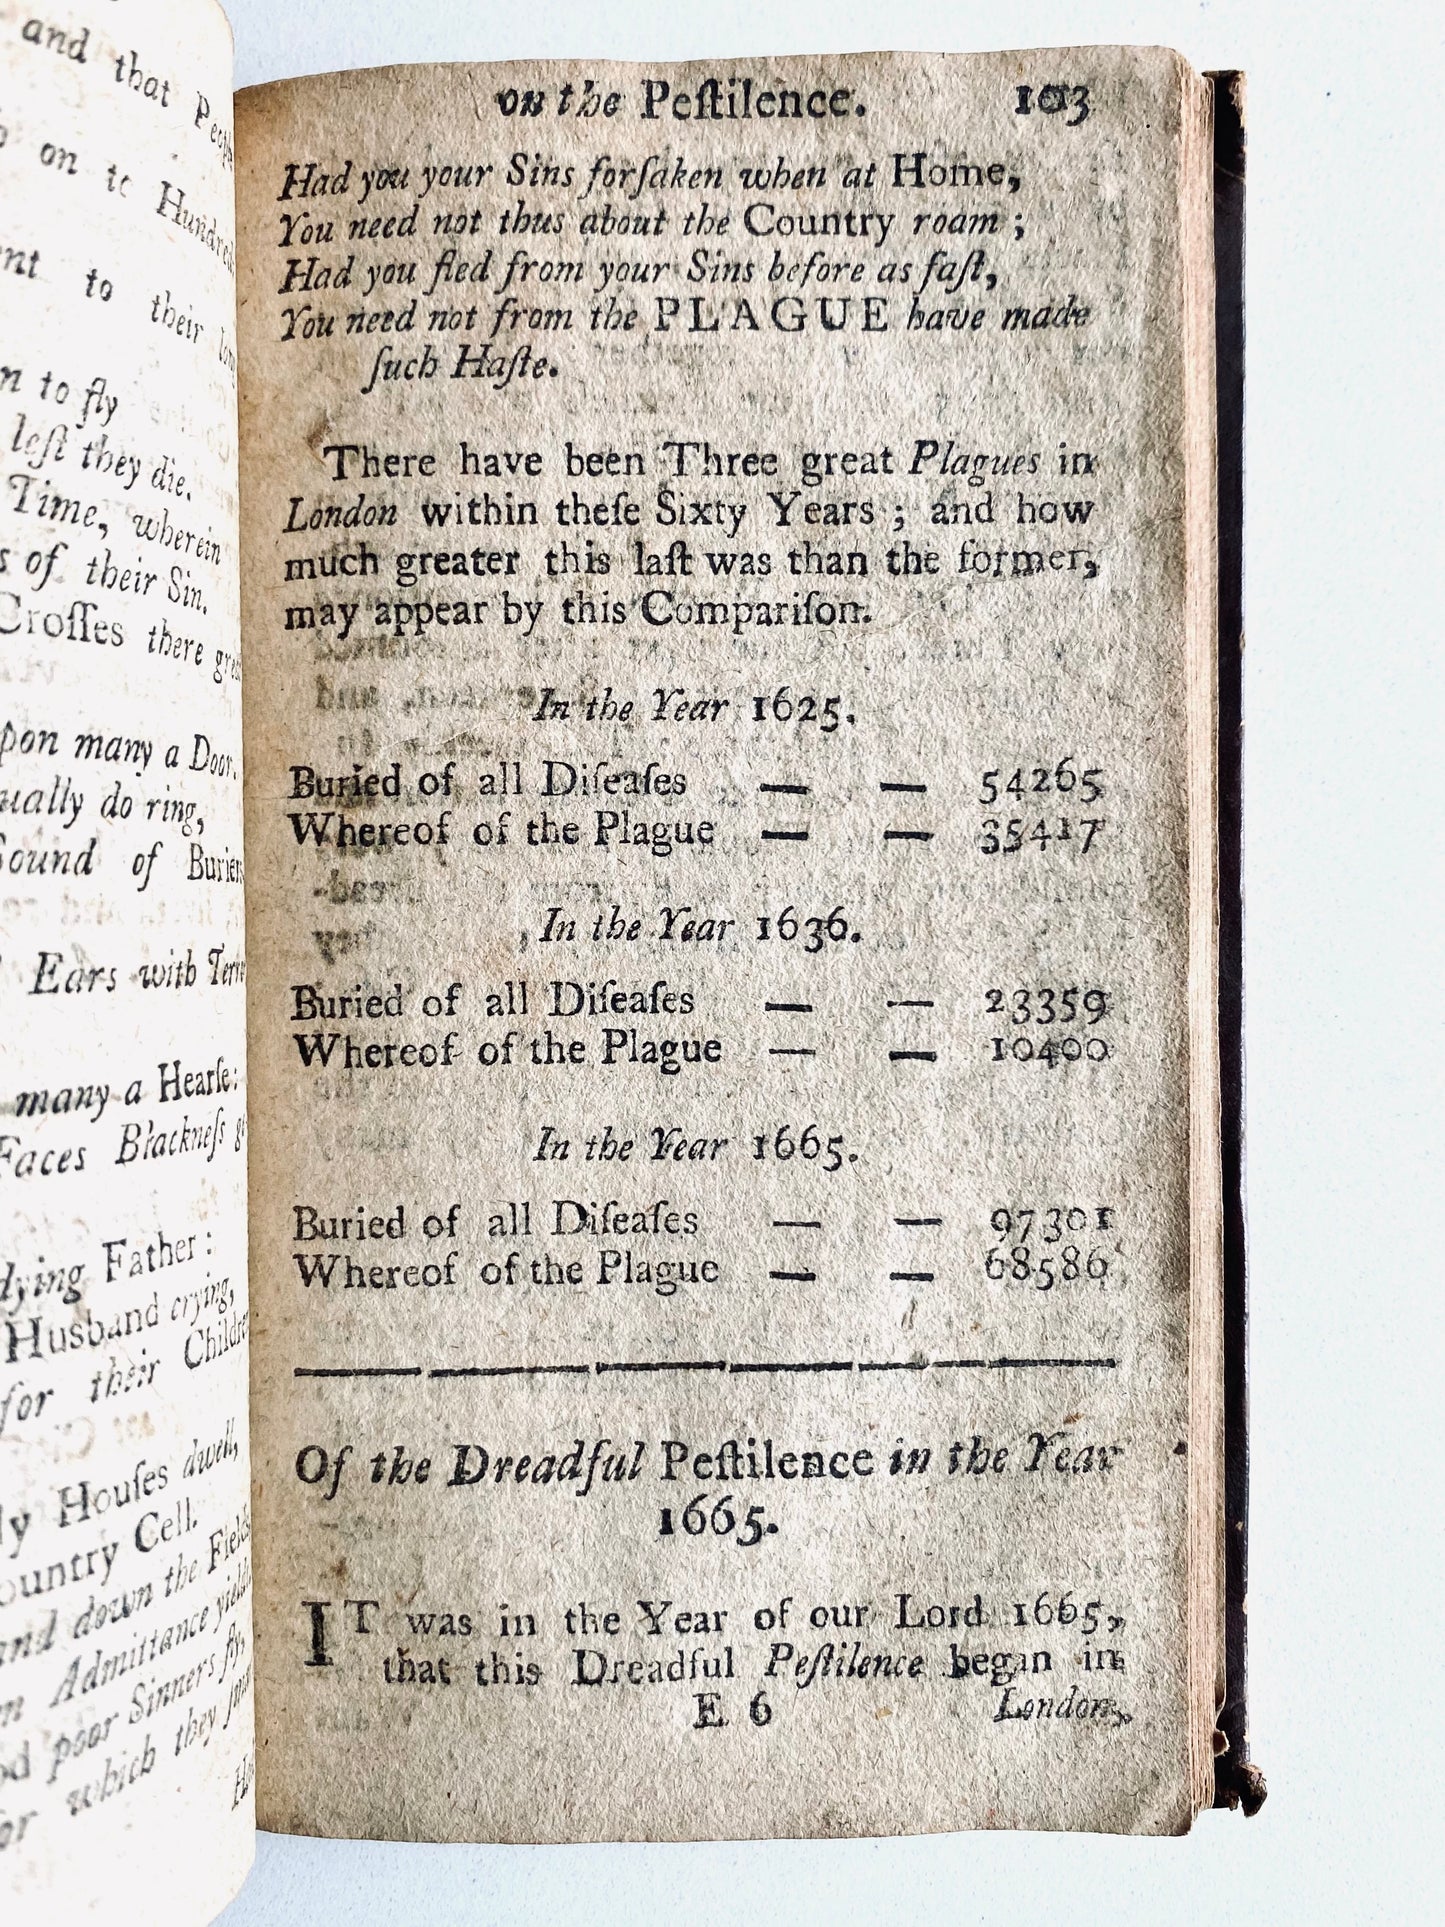 and that
on to Hundreds
to their long
to fly
lest they die.
Time, wherein
of their Sin.
Croſſes there
many a Door.
do ring,
Sound of Buriers
Ears with
many a Hearſe:
Faces Blackneſs
dying Father:
Husband crying,
for their Children
Houſes dwell,
Country Cell.
and down the Fields
Admittance yield
poor Sinners fly,
for which they
on the Peſtilence. 103
Had you your Sins forſaken when at Home,
You need not thus about the Country roam ;
Had you fled from your Sins before as faſt,
You need not from the PLAGUE have made
ſuch Haſte.
There have been Three great Plagues in
London within theſe Sixty Years ; and how
much greater this laſt was than the former,
may appear by this Compariſon.
In the Year 1625.
Buried of all Diſeaſes — — 54265
Whereof of the Plague — — 35417
In the Year 1636.
Buried of all Diſeaſes — — 23359
Whereof of the Plague — — 10400
In the Year 1665.
Buried of all Diſeaſes — — 97301
Whereof of the Plague — — 68586
Of the Dreadful Peſtilence in the Year
1665.
IT was in the Year of our Lord 1665,
that this Dreadful Peſtilence began in
E 6 London,